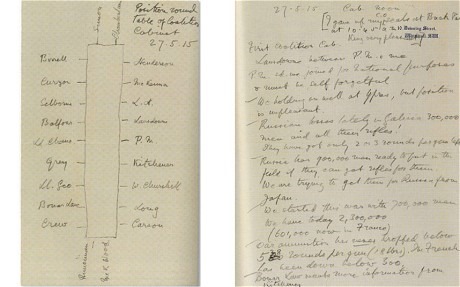 Position round
Table of Coalition
Cabinet
27-5-15
Simon
Chamberlain
Birrell
Henderson
Curzon
McKenna
Selborne
L.H.
Balfour
Lansdowne
P.M.
Grey
Kitchener
Ll. Geo
W. Churchill
Bonar Law
Long
Crewe
Carson
McK Wood
27-5-15 Cab noon
at 10.45
10, Downing Street,
Whitehall. S.W.
First Coalition Cab.
Lansdowne between P.M. & me
P.M. sd. we joined for national purposes
& must be self forgetful
We holding on well at Ypres, but position
is unpleasant
Russian losses lately in Galicia 300,000
men and all their rifles!
They have got only 2 or 3 rounds per gun left
Russia has 900,000 men ready to put in the
field if they can get rifles for them.
We are trying to get them for Russia from
Japan.
We started this war with 700,000 men
We have today 2,300,000
(601,000 now in France)
Our ammunition has dropped below
rounds per gun
The French
has been down below 300
Bonar Law wants more information from
Kitchener